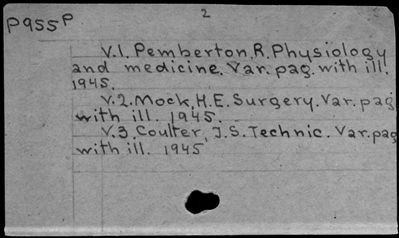 P955P
2
V.1. Pemberton, R. Physiology
and medicine. Var. pag. with ill.
1945.
V.2. Mock, H.E. Surgery. Var. pag
with ill. 1945.
V.3. Coulter, J.S. Technic. Var. pag
with ill. 1945